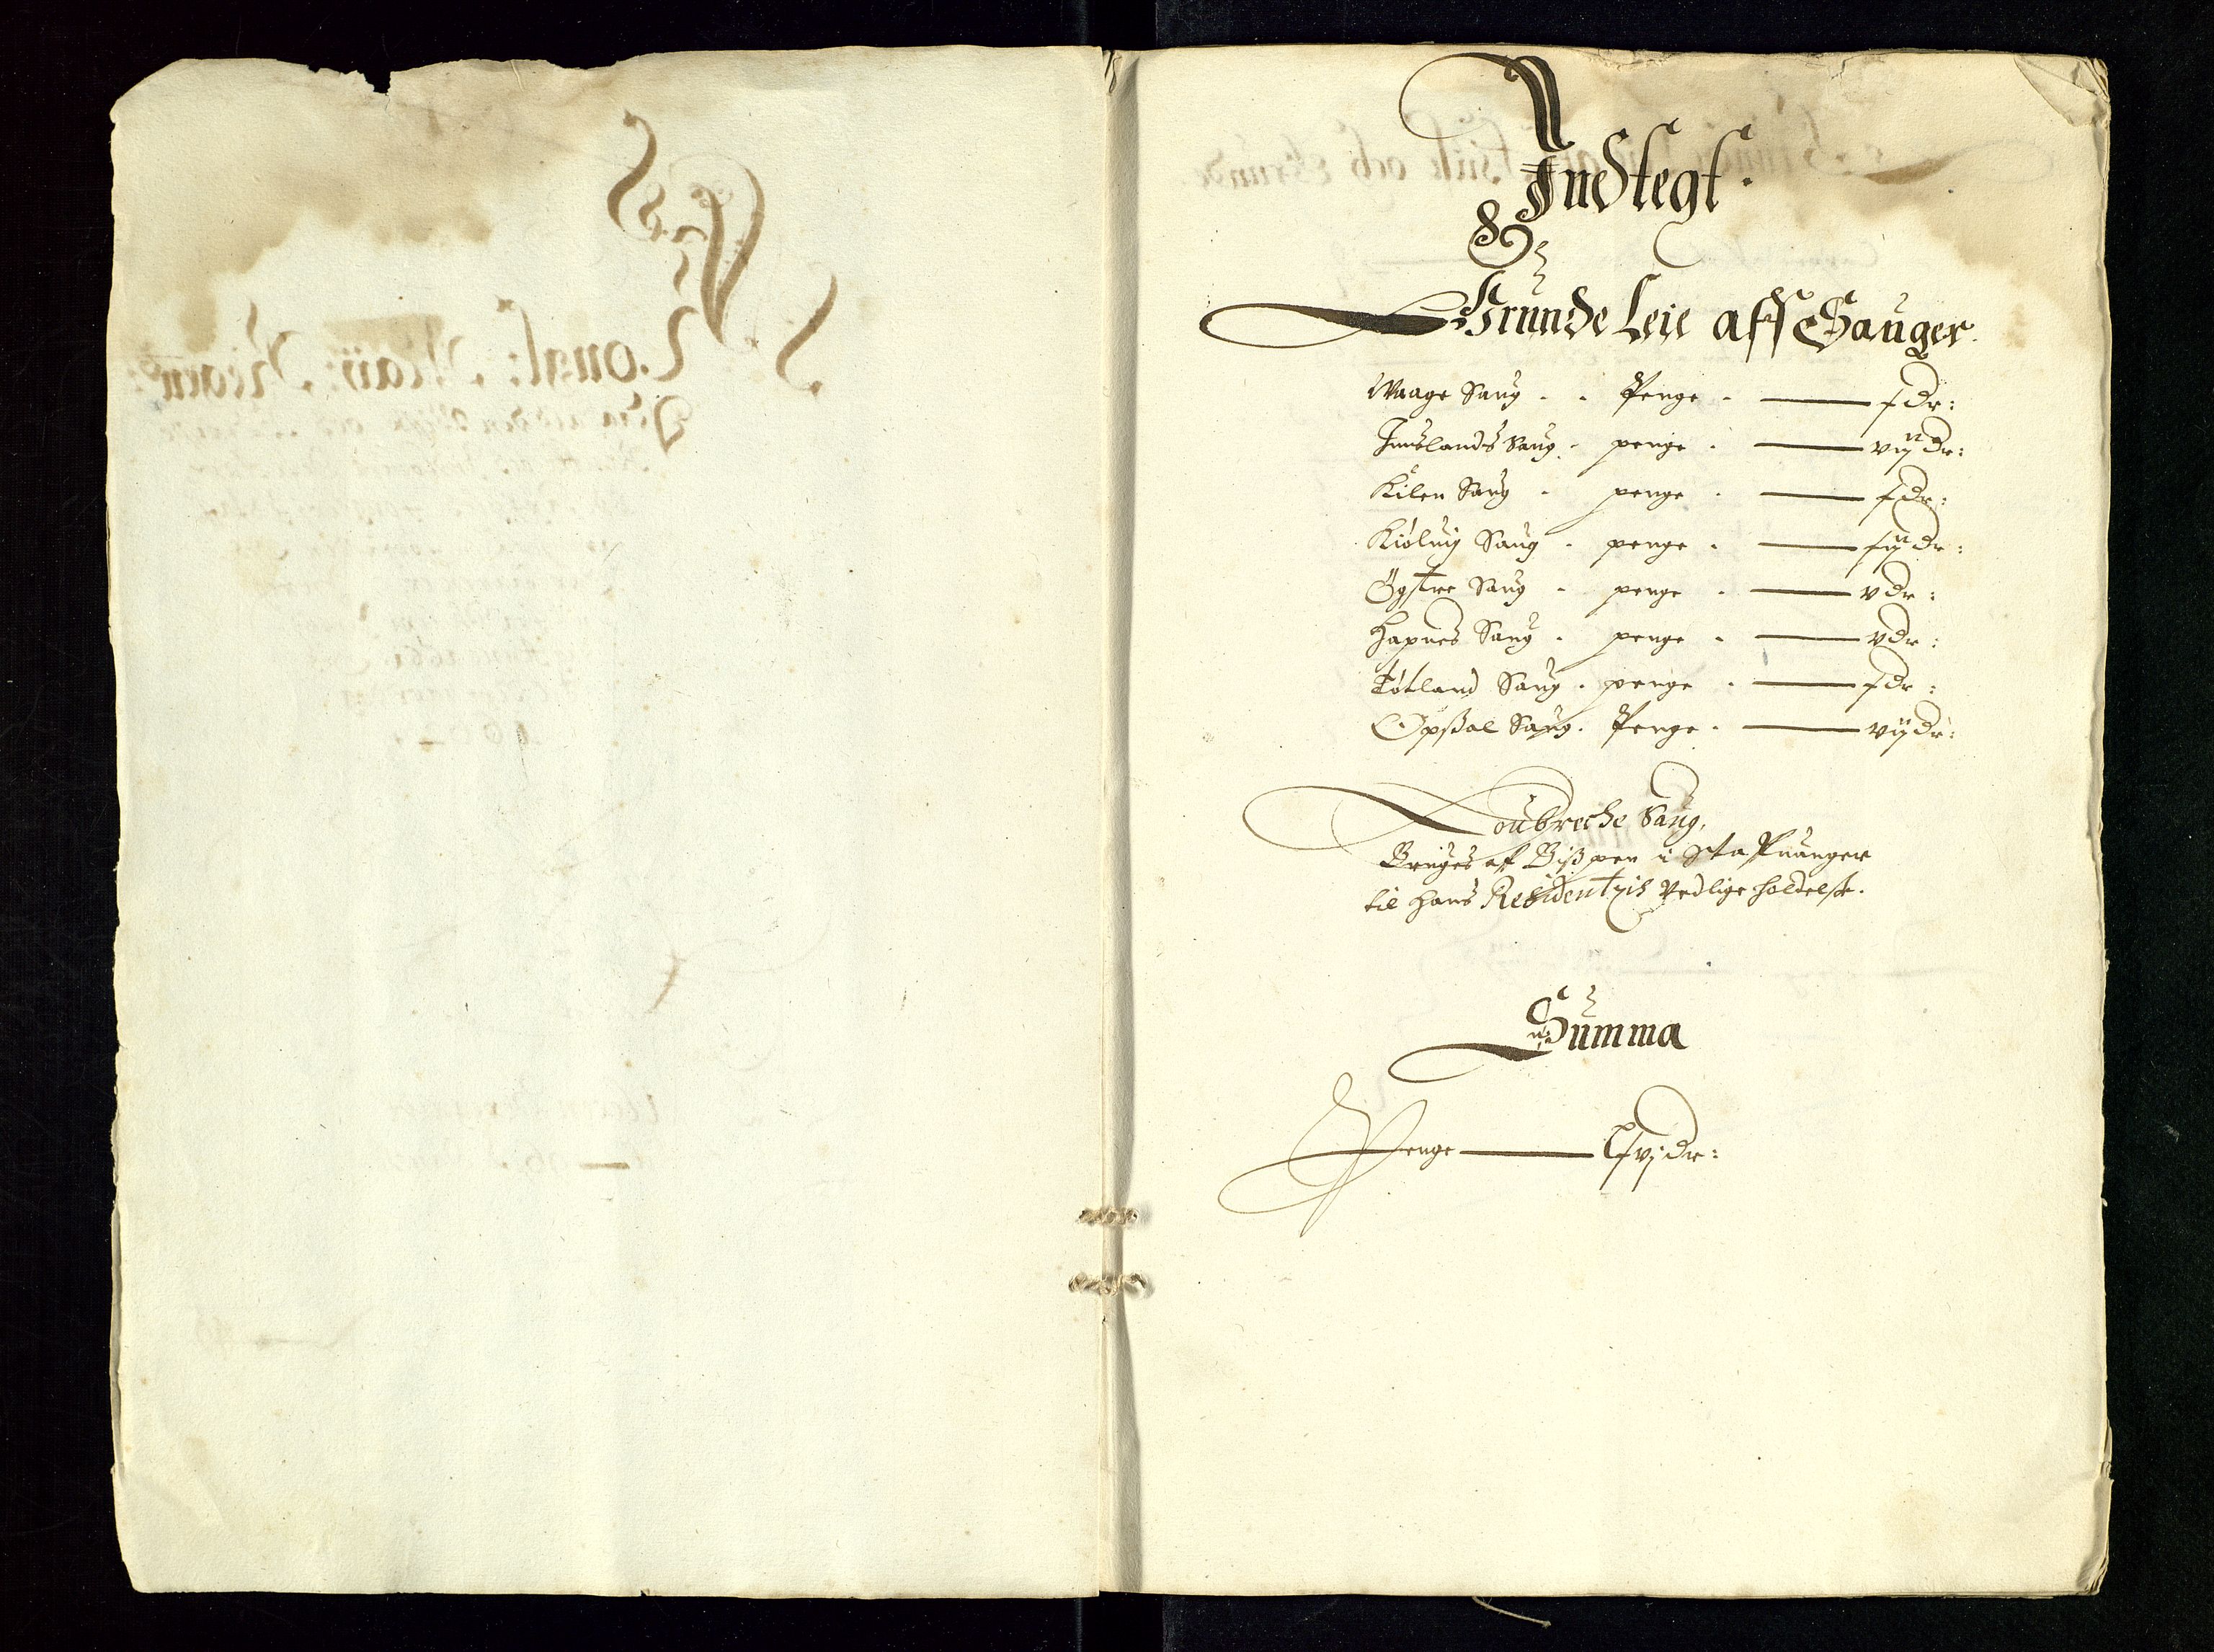 Indtegt.
Grunde Leie aff Sauger
Waage Saug - - Penge - — x dr:
Imslands Saug - penge - — vij dr:
Kilen Saug - penge - — x dr:
Kiøluig Saug - penge - — xij dr:
Øgstre Saug - penge - — v dr:
Hapnes Saug - penge - — v dr:
Tøtland Saug - penge - — x dr:
Opßal Saug - Penge - — vij dr:
Loubreche Saug,
Bruges af Bißpen i Staffuanger
til hans Residentzis Vedlige holdelse.
Summa
Penge — Lxvj dr: